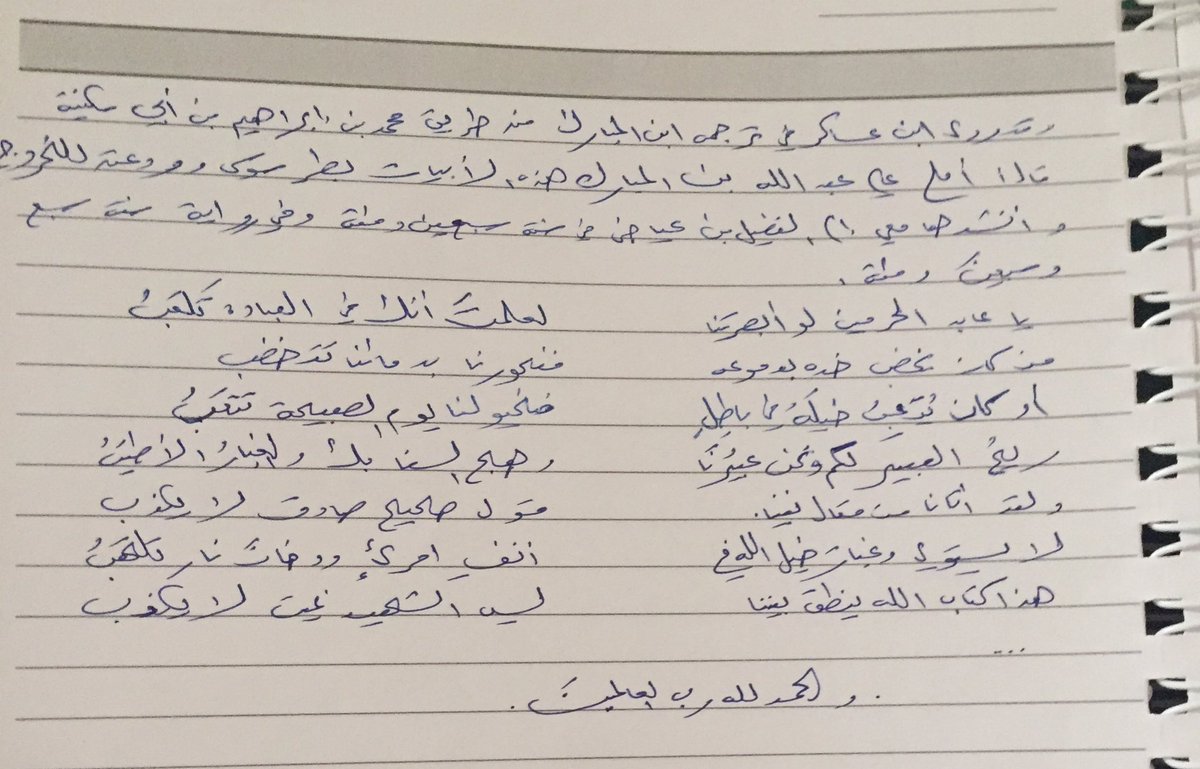 وقد روى ابن عساكر في ترجمة ابن المبارك من طريق محمد بن إبراهيم بن أبي سكينة
قال: أملى علي عبد الله بن المبارك هذه الأبيات بطرسوس وودعته للخروج
و أنشدها معي إلى الفضيل بن عياض في سنة سبعين ومئة وفي رواية سنة سبع
وسبعين ومئة.
يا عابد الحرمين لو أبصرتنا لعلمتَ أنك في العبادة تلعبُ
من كان يخضب خده بدموعه فنحورنا بدمائنا تتخضب
أو كان يُتعِبُ خيلَهُ في باطلٍ فخيولنا يوم الصبيحة تتعبُ
ريحُ العبير لكم ونحن عبيرُنا وهج السنابك والغبارُ الأطيبُ
ولقد أتانا من مقال نبينا قول صحيح صادق لا يكذب
لا يستوي وغبارَ خيل الله في أنفِ امرئٍ ودخانُ نار تلهبُ
هذا كتاب الله ينطق بيننا ليس الشهيد بميت لا يكذب
...
. والحمد لله رب العالمين .